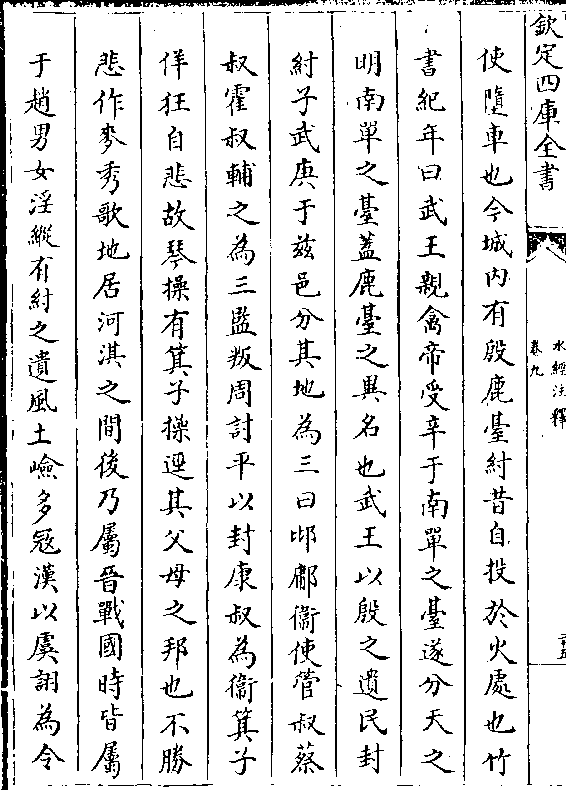 欽定四庫全書
水經注釋
卷九
使墮車也今城内有殷鹿臺紂昔自投於火處也竹
書紀年曰武王親禽帝受辛于南單之臺遂分天之
明南單之臺蓋鹿臺之異名也武王以殷之遺民封
紂子武庚于兹邑分其地為三曰邶鄘衞使管叔蔡
叔霍叔輔之為三監叛周討平以封康叔為衞箕子
佯狂自悲故琴操有箕子操逕其父母之邦也不勝
悲作麥秀歌地居河淇之間後乃屬晉戰國時皆屬
于趙男女淫縱有紂之遺風土嶮多寇漢以虞詡為令